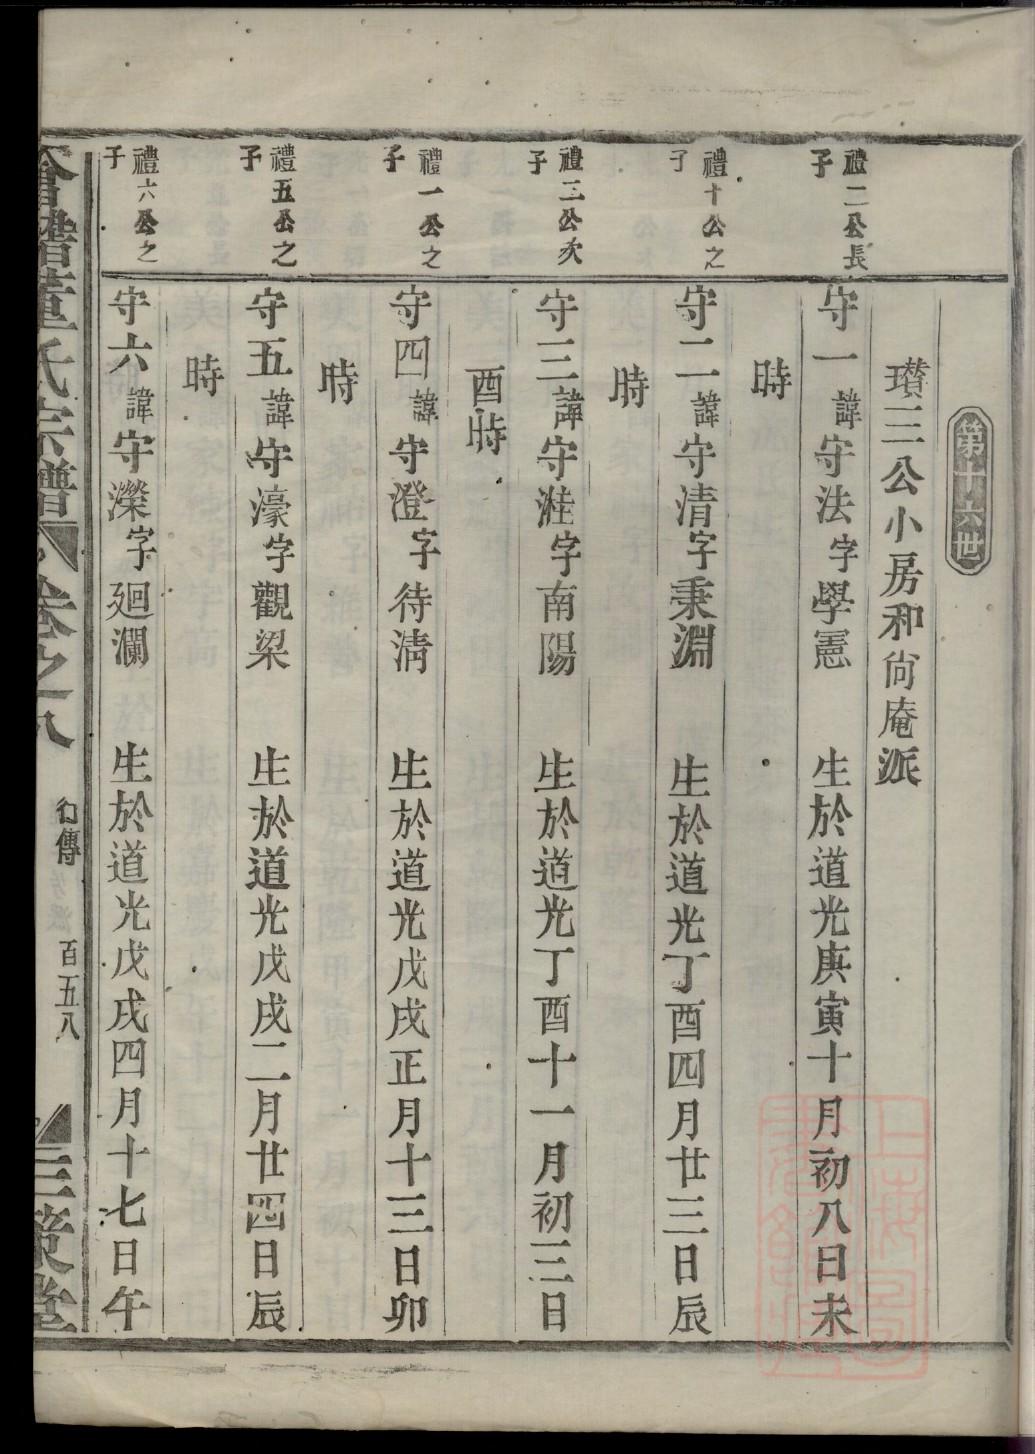 第十六世
瓚三公小房和尙庵派
禮二公長子
守一諱守法字學憲 生於道光庚寅十月初八日未
時
禮十公之子
守二諱守清字秉淵 生於道光丁酉四月廿三日辰
時
禮三公次子
守三諱守溎字南陽 生於道光丁酉十一月初三日
酉時
禮一公之子
守四諱守澄字待清 生於道光戊戌正月十三日卯
時
禮五公之子
守五諱守濠字觀梁 生於道光戊戌二月廿四日辰
時
禮六公之子
守六諱守濼字廻瀾 生於道光戊戌四月十七日午
會稽董氏宗譜 卷之八 行傳 百五八 三策堂